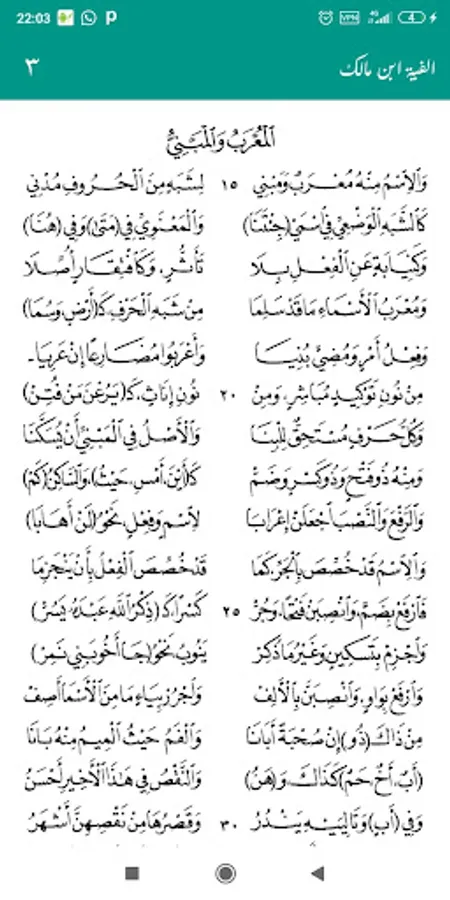 22:03
4G
4
٣
الفية ابن مالك
المُعْرَبُ وَالمَبْنِيُّ
وَالِاسْمُ مِنْهُ مُعْرَبٌ وَمَبْنِي ١٥ لِشَبَهٍ مِنَ الْحُرُوفِ مُدْنِي
كَالشَّبَهِ الْوَضْعِيِّ فِي اسْمَيْ (جِئْتَنَا) وَالْمَعْنَوِيِّ فِي (مَتَى) وَفِي (هُنَا)
وَكَنِيَابَةٍ عَنِ الْفِعْلِ بِلَا تَأَثُّرٍ، وَكَافْتِقَارٍ أُصِّلَا
وَمُعْرَبُ الْأَسْمَاءِ مَا قَدْ سَلِمَا مِنْ شَبَهِ الْحَرْفِ كَـ(أَرْضٍ وَسُمَا)
وَفِعْلُ أَمْرٍ وَمُضِيٍّ بُنِيَا وَأَعْرَبُوا مُضَارِعًا إِنْ عَرِيَا۔
مِنْ نُونِ تَوْكِيدٍ مُبَاشِرٍ، وَمِنْ ٢٠ نُونِ إِنَاثٍ، كَـ(يَرُعْنَ مَنْ فُتِنْ)
وَكُلُّ حَرْفٍ مُسْتَحِقٌّ لِلْبِنَا وَالْأَصْلُ فِي الْمَبْنِيِّ أَنْ يُسَكَّنَا
وَمِنْهُ ذُو فَتْحٍ وَذُو كَسْرٍ وَضَمْ كَـ(أَيْنَ، أَمْسِ، حَيْثُ)، وَالسَّاكِنُ (كَمْ)
وَالرَّفْعَ وَالنَّصْبَ اجْعَلَنْ إِعْرَابَا لِاسْمٍ وَفِعْلٍ، نَحْوُ (لَنْ أَهَابَا)
وَالِاسْمُ قَدْ خُصِّصَ بِالْجَرِّ، كَمَا قَدْ خُصِّصَ الْفِعْلُ بِأَنْ يَنْجَزِمَا
فَارْفَعْ بِضَمٍّ، وَانْصِبَنْ فَتْحًا، وَجُرْ ٢٥ كَسْرًا، كَـ(ذِكْرُ اللَّهِ عَبْدَهُ يَسُرْ)
وَاجْزِمْ بِتَسْكِينٍ وَغَيْرُ مَا ذُكِرْ يَنُوبُ، نَحْوُ (جَا أَخُو بَنِي نَمِرْ)
وَارْفَعْ بِوَاوٍ، وَانْصِبَنَّ بِالْأَلِفْ وَاجْرُرْ بِيَاءٍ مَا مِنَ الْأَسْمَا أَصِفْ
مِنْ ذَاكَ (ذُو) إِنْ صُحْبَةً أَبَانَا وَالْفَمُ حَيْثُ الْمِيمُ مِنْهُ بَانَا
(أَبٌ، أَخٌ، حَمٌ) كَذَاكَ، وَ(هَنُ) وَالنَّقْصُ فِي هَذَا الْأَخِيرِ أَحْسَنُ
وَفِي (أَبٍ) وَتَالِيَيْهِ يَنْدُرُ ٣٠ وَقَصْرُهَا مِنْ نَقْصِهِنَّ أَشْهَرُ